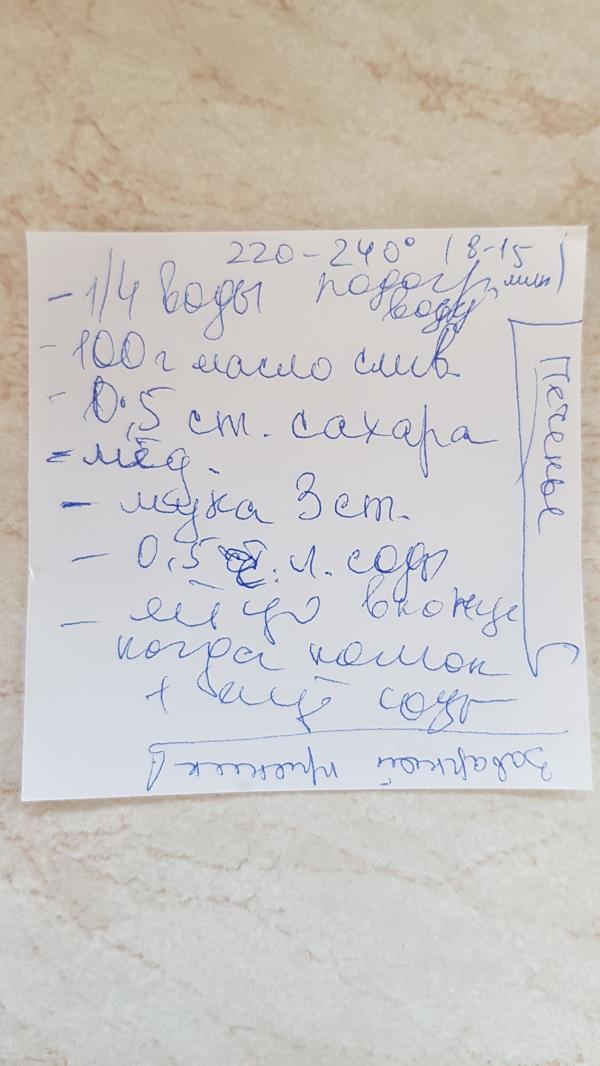 220-240° (8-15 мин)
- 1/4 воды подогр воду
- 100 г масло слив
- 0,5 ст. сахара
- мёд.
- мука 3 ст.
- 0,5 ч. л. соды
- яйцо в конце
когда комок
+ ещё соды
Печенье
Заварной пряник